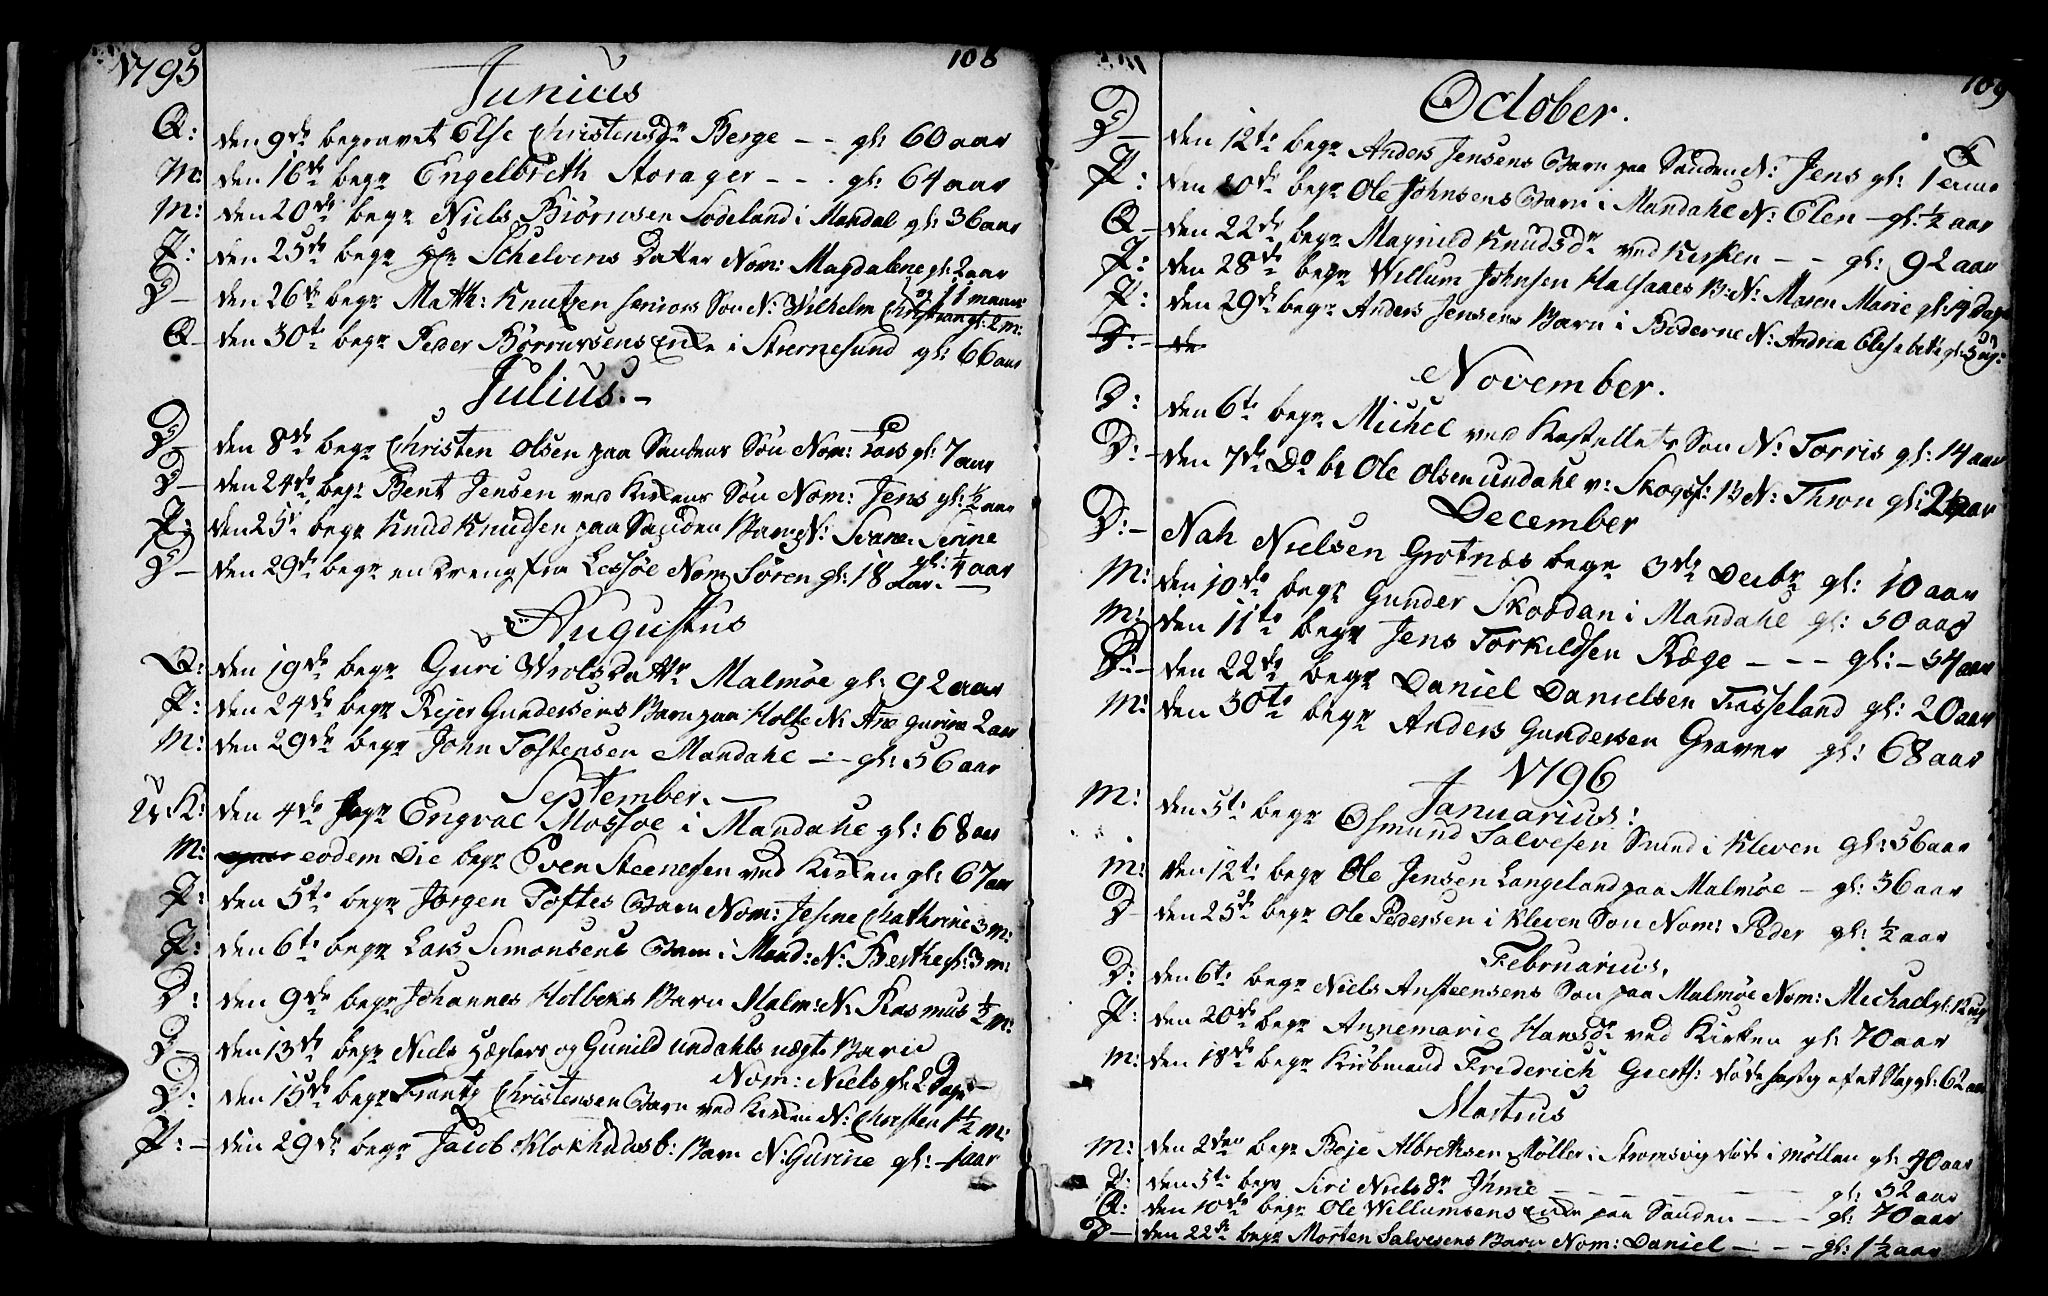 1795
108
Junius
Q: den 9de begravet Else Christensdr Berge - - gl: 60 aar
M: den 16de begr Engelbreth Storager - - . gl: 64 aar
M: den 20de begr Niels Biörnsen Sodeland i Mandal gl: 36 aar
P: den 25de begr Hr Schelvens Datter Nom: Magdalene gl: 2 aar
D - den 26de begr Math: Knutzen seniors Søn N: Wilhelm Christian gl: 2 m:
Q - den 30te begr Peder Börrussens Enke i Stiernesund gl: 66 aar
Julius. -
D - den 8de begr Christen Olsen paa Sandens Sön Nom: Lars gl: 7 aar
D - den 24de begr Bent Jensen ved Kirkens Sön Nom: Jens gl: ½ aar
P: den 25de begr Knud Knudsen paa Sanden Barn N: Serine
gl: ¼ aar
D - den 29de begr en Dreng fra Lessöe Nom Sören gl: 18 aar. -
Augustus
Q: den 19de begr Guri Wrolsdattr Malmöe gl: 92 aar
P: den 24de begr Rejer Gundersens Barn paa Holte N: Ane Gurine 2 aar
M: den 29de begr John Tostensen Mandahl - gl: 56 aar
September.
K: den 4de begr Engvac Mossöe i Mandahl gl: 68 aar
M: eodem Die begr Even Steenesen ved Kirken gl: 67 aar
P: den 5te begr Jörgen Toftes Barn Nom: Jesine Cathrine 3 m:
P: den 6te begr Lars Simonsens Barn i Mand: N: Berthe gl: 3 m:
D: den 9de begr Johannes Holbeks Barn Malm: N: Rasmus ½ m:
D - den 13de begr Niels Hæglers og Gunild Undahls uægte Barn
Nom: Niels gl: 2 Dage -
D: den 15de begr Frantz Christensen Barn ved Kirken N: Christen 1½ m:
P: - den 29de begr Jacob Klokhuusb: Barn N: Gurine gl: - 1 aar
109
October.
D - den 12te begr Anders Jensens Barn paa Sanden N: Jens gl: 1
P: den 20de begr Ole Johnsens Barn i Mandahl N: Elen - gl: ½ aar
Q - den 22de begr Magnild Knudsdr ved Kirken - - gl: 92 aar
P: den 28de begr Willum Johnsen Halsaaes B: N: Maren Marie gl: 14 Dage
P: den 29de begr Anders Jensens Barn i Boderne N: Andrea Elisebeth gl: 5 ug:
D: - de
November.
D: den 6te begr Michel ved Kastellets Søn N: Torris gl: 14 aar
D: - den 7de Do be Ole Olsen Undahl v: Skogsf: B N: Thron gl: 2½ aar
December
D: - Nah Nielsen Grotnæs begr 3de Decbr gl: 10 aar
M: den 10de begr Gunder Skoddan i Mandahl gl: 50 aar
M: den 11te begr Jens Torkildsen Ræge - - - gl: - 54 aar
D: - den 22de begr Daniel Danielsen Fasseland gl: 20 aar
M: den 30te begr Anders Gundersen Graver gl: 68 aar
1796
Januarius:
M: den 5te begr Osmund Salvesen Sund i Kleven gl: 56 aar
M: den 12te begr Ole Jensen Langeland paa Malmöe - gl: 36 aar
D - den 25de begr Ole Pedersen i Kleven Søn Nom: Peder gl: ½ aar
Februarius,
D: den 6te begr Niels Ansteensens Søn paa Malmöe Nom: Michael gl: 12 ug
P: den 20de begr Annemarie Hansdr ved Kirken gl: 70 aar
M: den 18de begr Kiöbmand Friderich Giertz döde hastig af et Slag gl: 62 aar
Martius
M: den 2den begr Boje Albretsen Möller i Stromsvig döde i möllen gl: 40 aar
Q: den 5te begr Siri Nielsdr Ihme - - - - gl: 52 aar
Q: den 10de begr Ole Willumsens Enke paa Sanden - - - gl: 70 aar
D - den 22de begr Morten Salvesens Barn Nom: Daniel - - - gl: 1½ aar